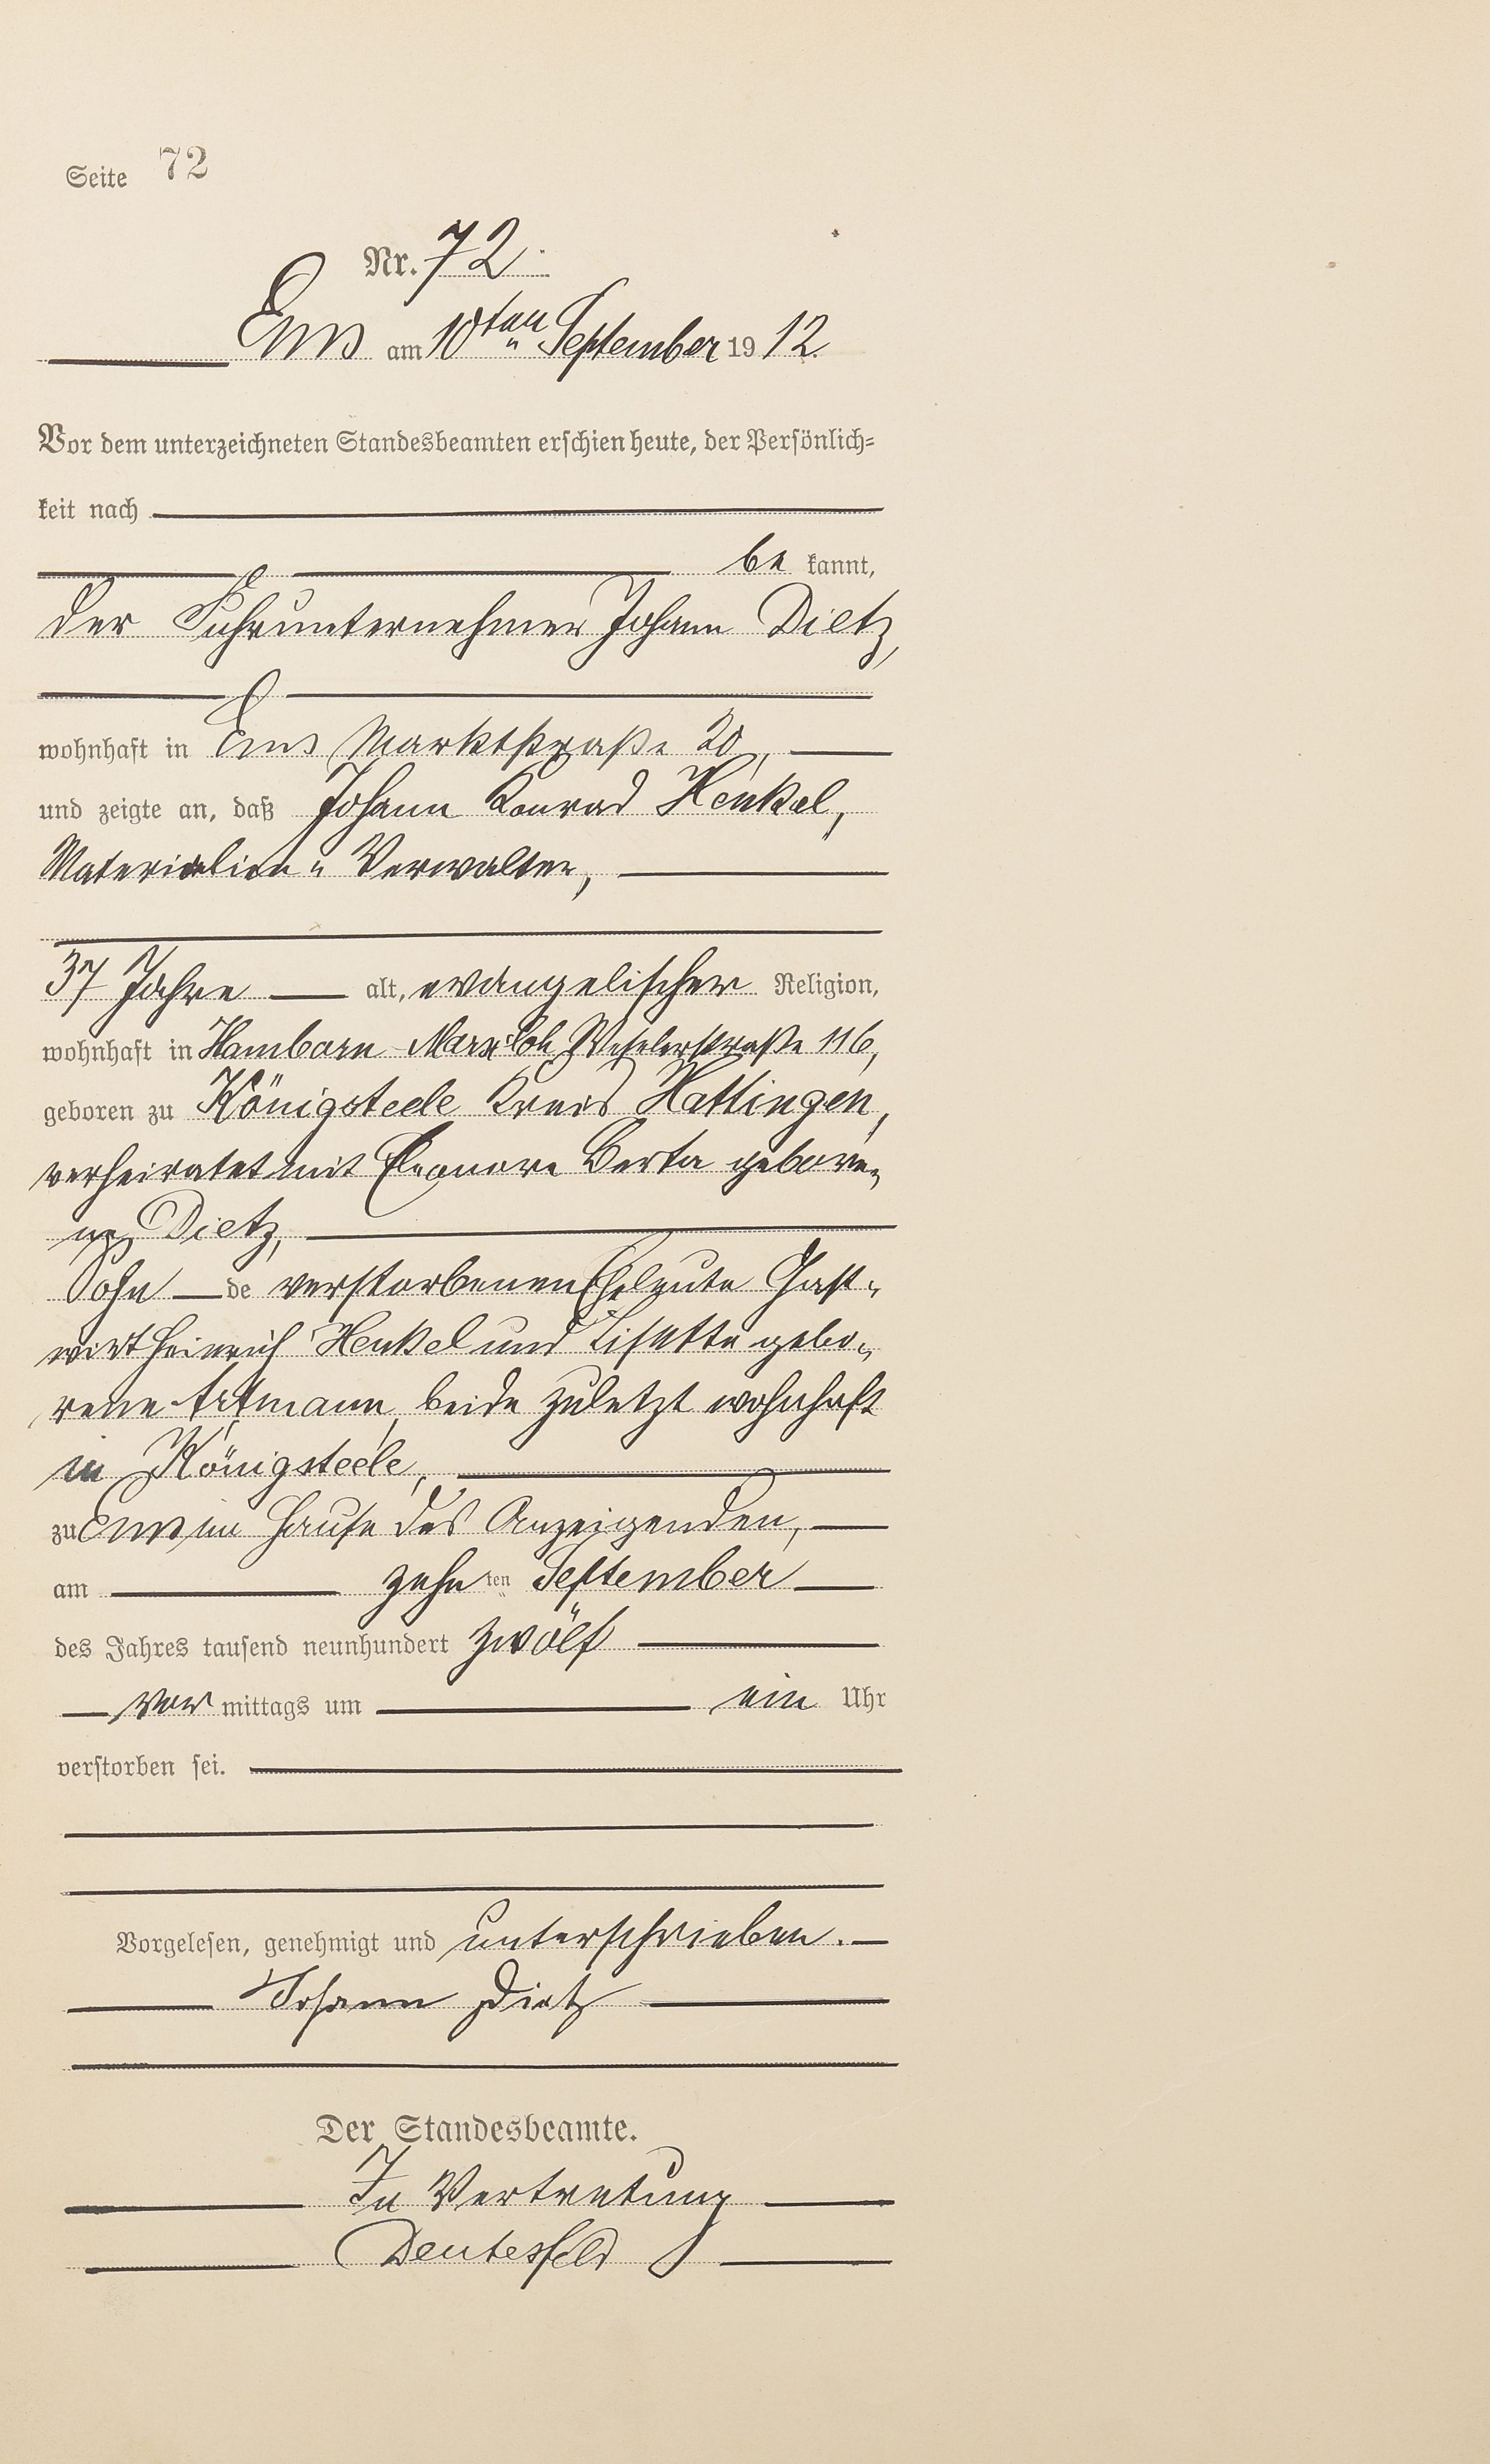 Seite 72
Nr. 72.
Ems am 10ten September 1912.
Vor dem unterzeichneten Standesbeamten erschien heute, der Persönlich-
keit nach
bekannt,
der Fuhrunternehmer Johann Dietz,
wohnhaft in Ems Marktstraße 20,
und zeigte an, daß Johann Konrad Henkel,
Materialien-Verwalter,
37 Jahre alt, evangelischer Religion,
wohnhaft in Hamborn-Marxloh, Weselerstraße 116,
geboren zu Königsteele Kreis Hattingen,
verheiratet mit Eleonore Berta gebore-
ne Dietz,
Sohn de verstorbenen Eheleute Gast-
wirt Heinrich Henkel und Lisette gebo-
rene Artmann, beide zuletzt wohnhaft
in Königsteele,
zu Ems im Hause des Anzeigenden,
am zehnten September
des Jahres tausend neunhundert zwölf
vormittags um ein Uhr
verstorben sei.
Vorgelesen, genehmigt und unterschrieben.
Johann Dietz
Der Standesbeamte.
In Vertretung
Deutesfeld